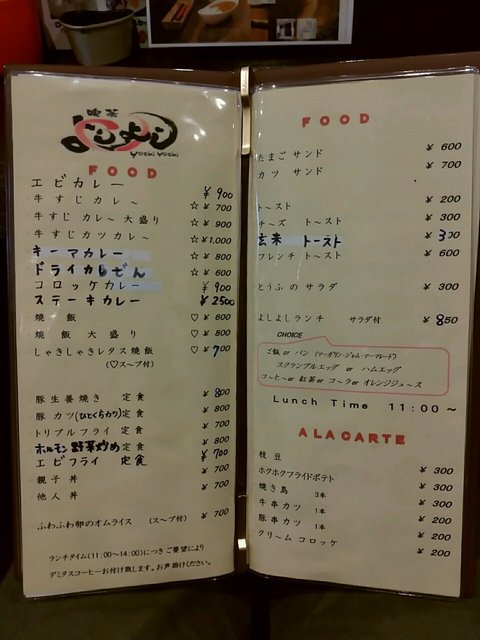 喫茶
よしよし
yoshi yoshi
FOOD
エビカレー ¥900
牛すじカレー ☆¥700
牛すじ カレー 大盛り ☆¥900
牛すじカツカレー ☆¥1,000
キーマカレー ☆¥800
ドライカレー ☆¥600
コロッケカレー ¥900
ステーキカレー ¥2500
焼 飯 ♡¥600
焼 飯 大盛り ♡¥800
しゃきしゃきレタス焼飯 ♡¥700
(♡スープ付)
豚生姜焼き 定食 ¥800
豚カツ(ひとくちカツ)定食 ¥800
トリプルフライ 定食 ¥700
ホルモン野菜炒め定食 ¥800
エビフライ 定食 ¥700
親子丼 ¥700
他人丼 ¥700
ふわふわ卵のオムライス (スープ付) ¥700
ランチタイム(11:00〜14:00)につき ご要望により
デミタスコーヒーお付け致します。お声掛けください。
FOOD
たまごサンド ¥600
カツ サンド ¥700
トースト ¥200
チーズ トースト ¥300
玄米 トースト ¥300
フレンチ トースト ¥600
とうふのサラダ ¥300
よしよしランチ サラダ付 ¥850
CHOICE
ご飯 or パン (マーガリン・ジャム・マーマレード)
スクランブルエッグ or ハムエッグ
コーヒー or 紅茶 or コーラ or オレンジジュース
Lunch Time 11:00〜
ALACARTE
枝豆 ¥300
ホクホクフライドポテト ¥300
焼き鳥 3本 ¥300
牛串カツ 1本 ¥200
豚串カツ 1本 ¥200
クリーム コロッケ ¥200